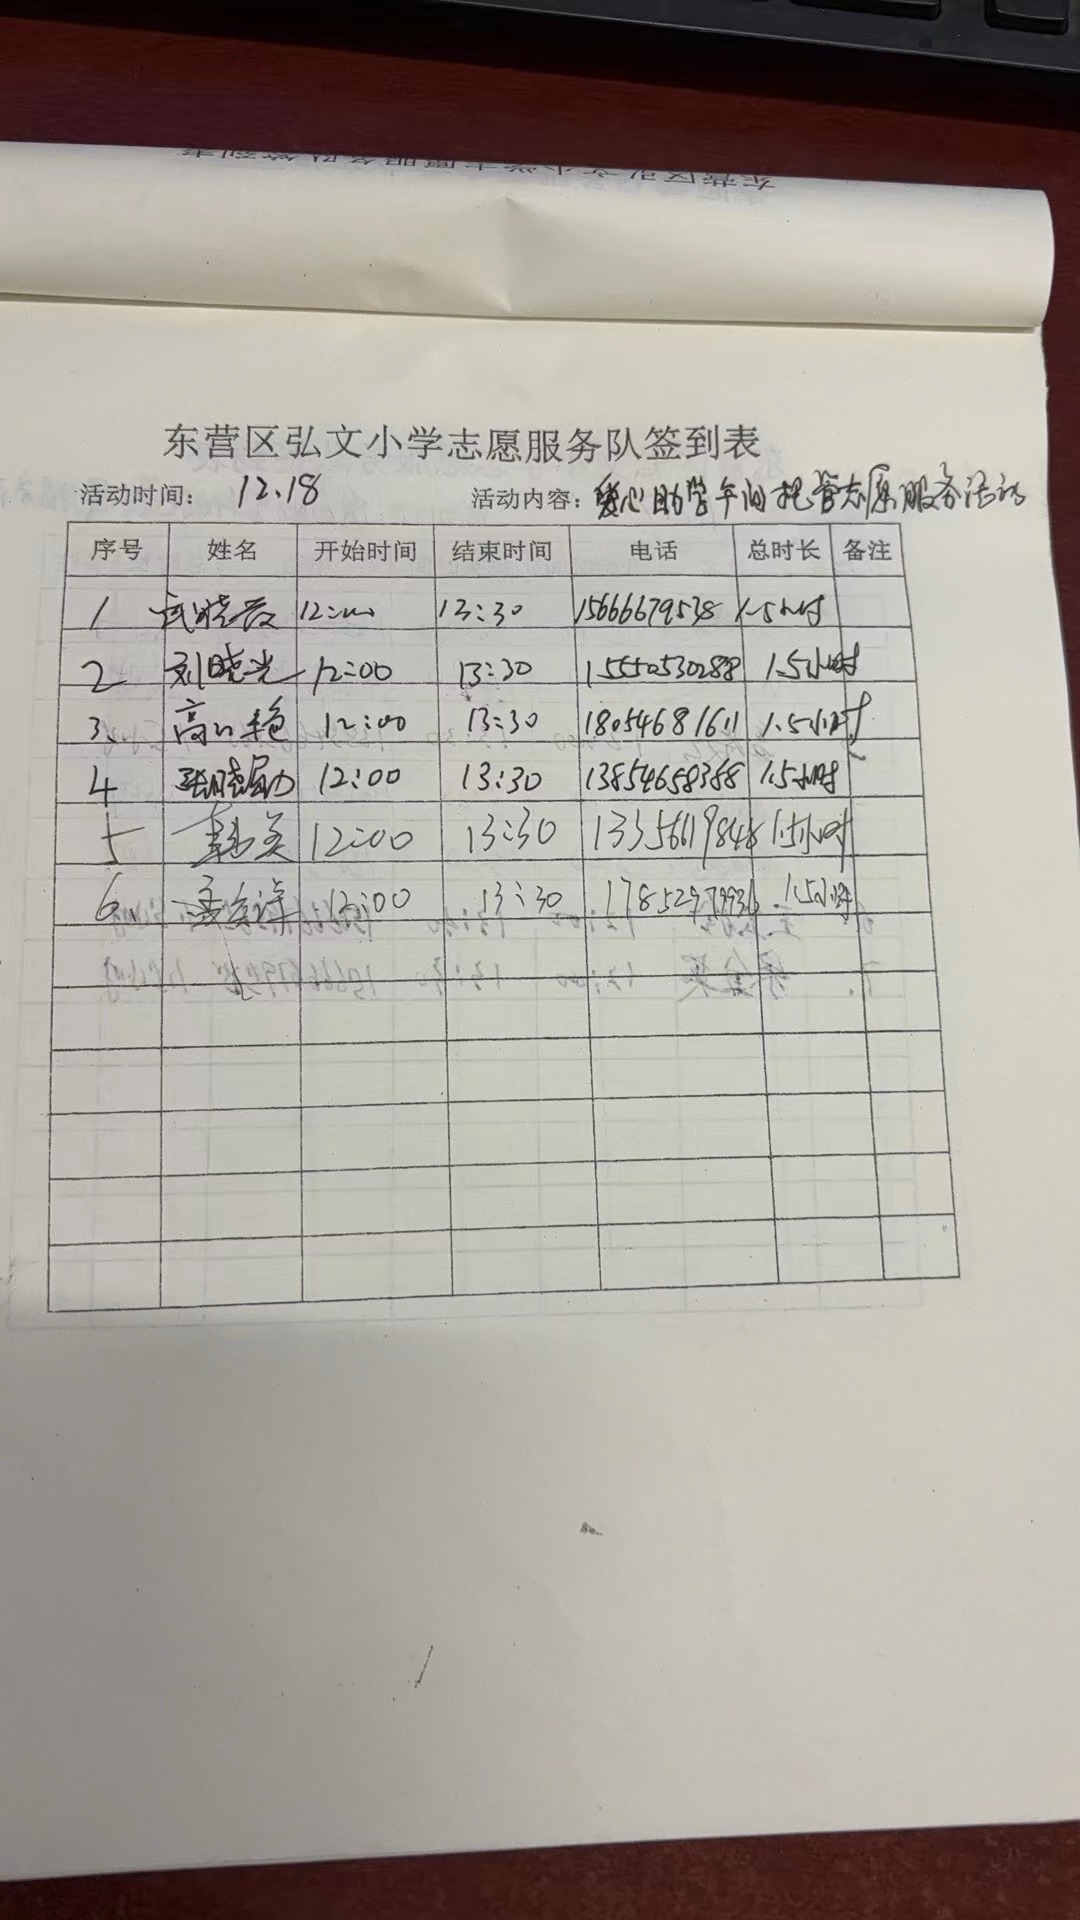 东营区弘文小学志愿服务队签到表
活动时间: 12.18 活动内容: 爱心助学午间托管志愿服务活动
序号 姓名 开始时间 结束时间 电话 总时长 备注
1 12:00 13:30 15666679538 1.5小时
2 刘晓光 12:00 13:30 15550530288 1.5小时
3. 高 艳 12:00 13:30 18054681611 1.5小时
4 张晓 12:00 13:30 13854658388 1.5小时
5 12:00 13:30 13356619848 1.5小时
6. 12:00 13:30 17852979936 1.5小时